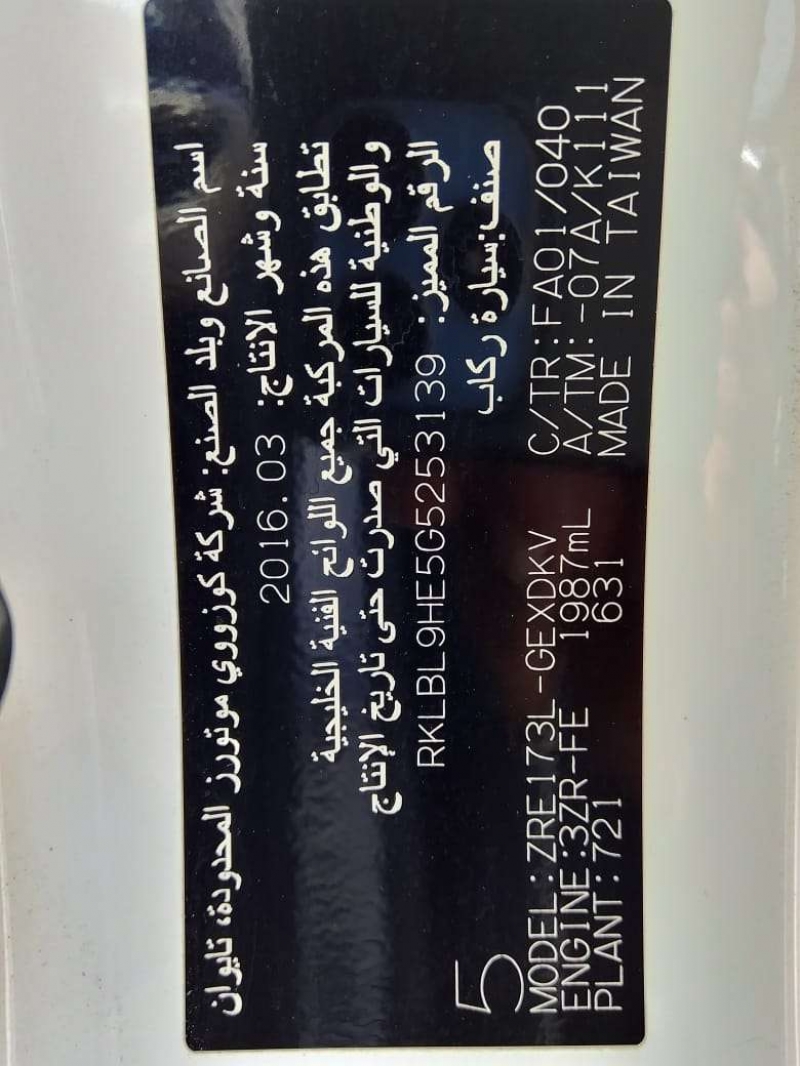 اسم الصانع وبلد الصنع: شركة كوزووي موتورز المحدودة، تايوان
سنة وشهر الانتاج: 2016.03
تطابق هذه المركبة جميع اللوائح الفنية الخليجية
والوطنية للسيارات التي صدرت حتى تاريخ الإنتاج
الرقم المميز: RKLBL9HE5G5253139
صنف:سيارة ركاب
5
MODEL:ZRE173L-GEXDKV C/TR:FA01/040
ENGINE:3ZR-FE 1987mL A/TM:-07A/K111
PLANT:721 631 MADE IN TAIWAN